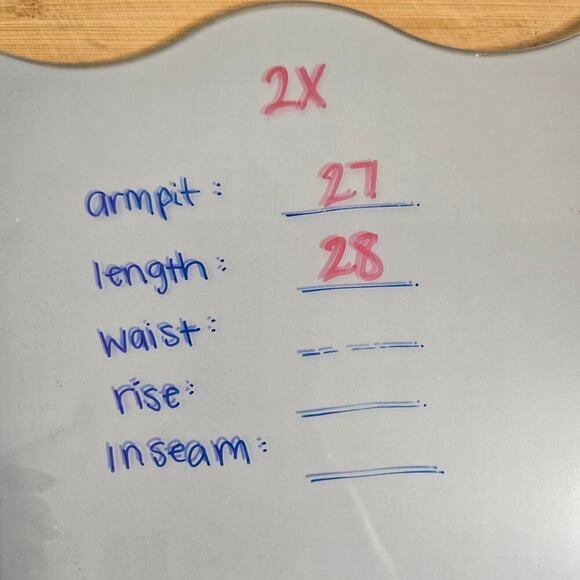 2X
armpit: 27
length: 28
waist:
rise:
inseam: